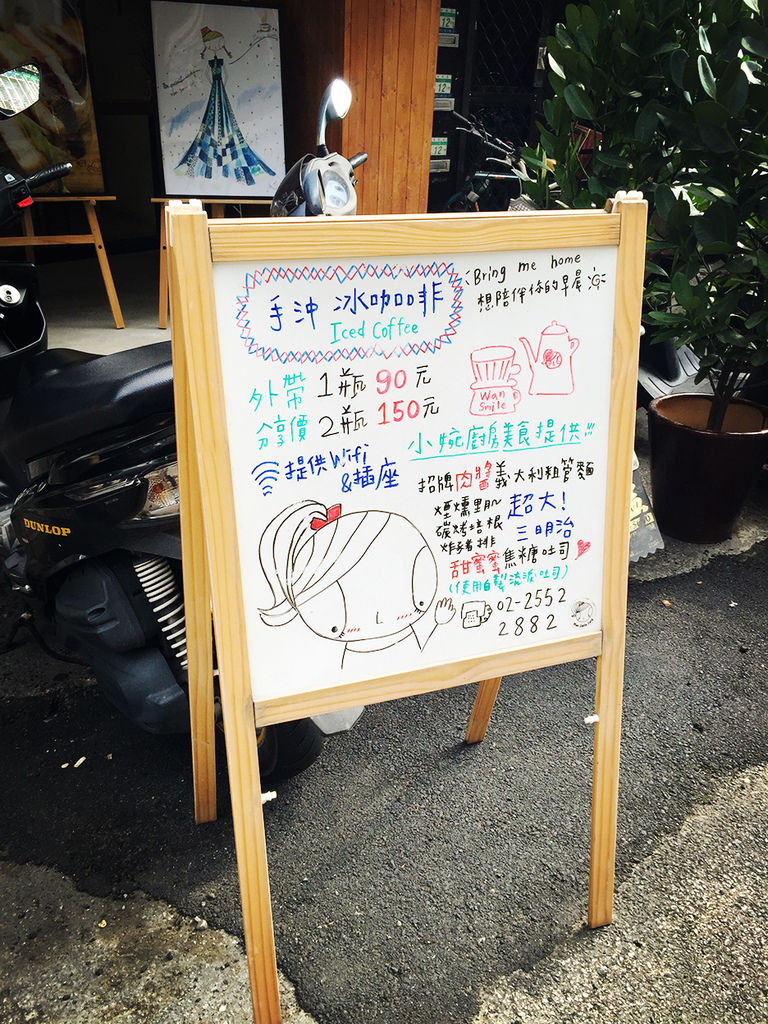 手沖 冰咖啡
Iced Coffee
Bring me home
想陪伴你的早晨
外帶
分享價
1瓶 90元
2瓶 150元
Wan
Smile
小婉廚房美食提供!!!
提供Wifi
&插座
招牌肉醬義大利粗管麵
煙燻里肌
碳烤培根
炸豬排
超大!
三明治
甜蜜蜜焦糖吐司
(使用自製流淚吐司)
02-2552
2882
DUNLOP
12
12
12